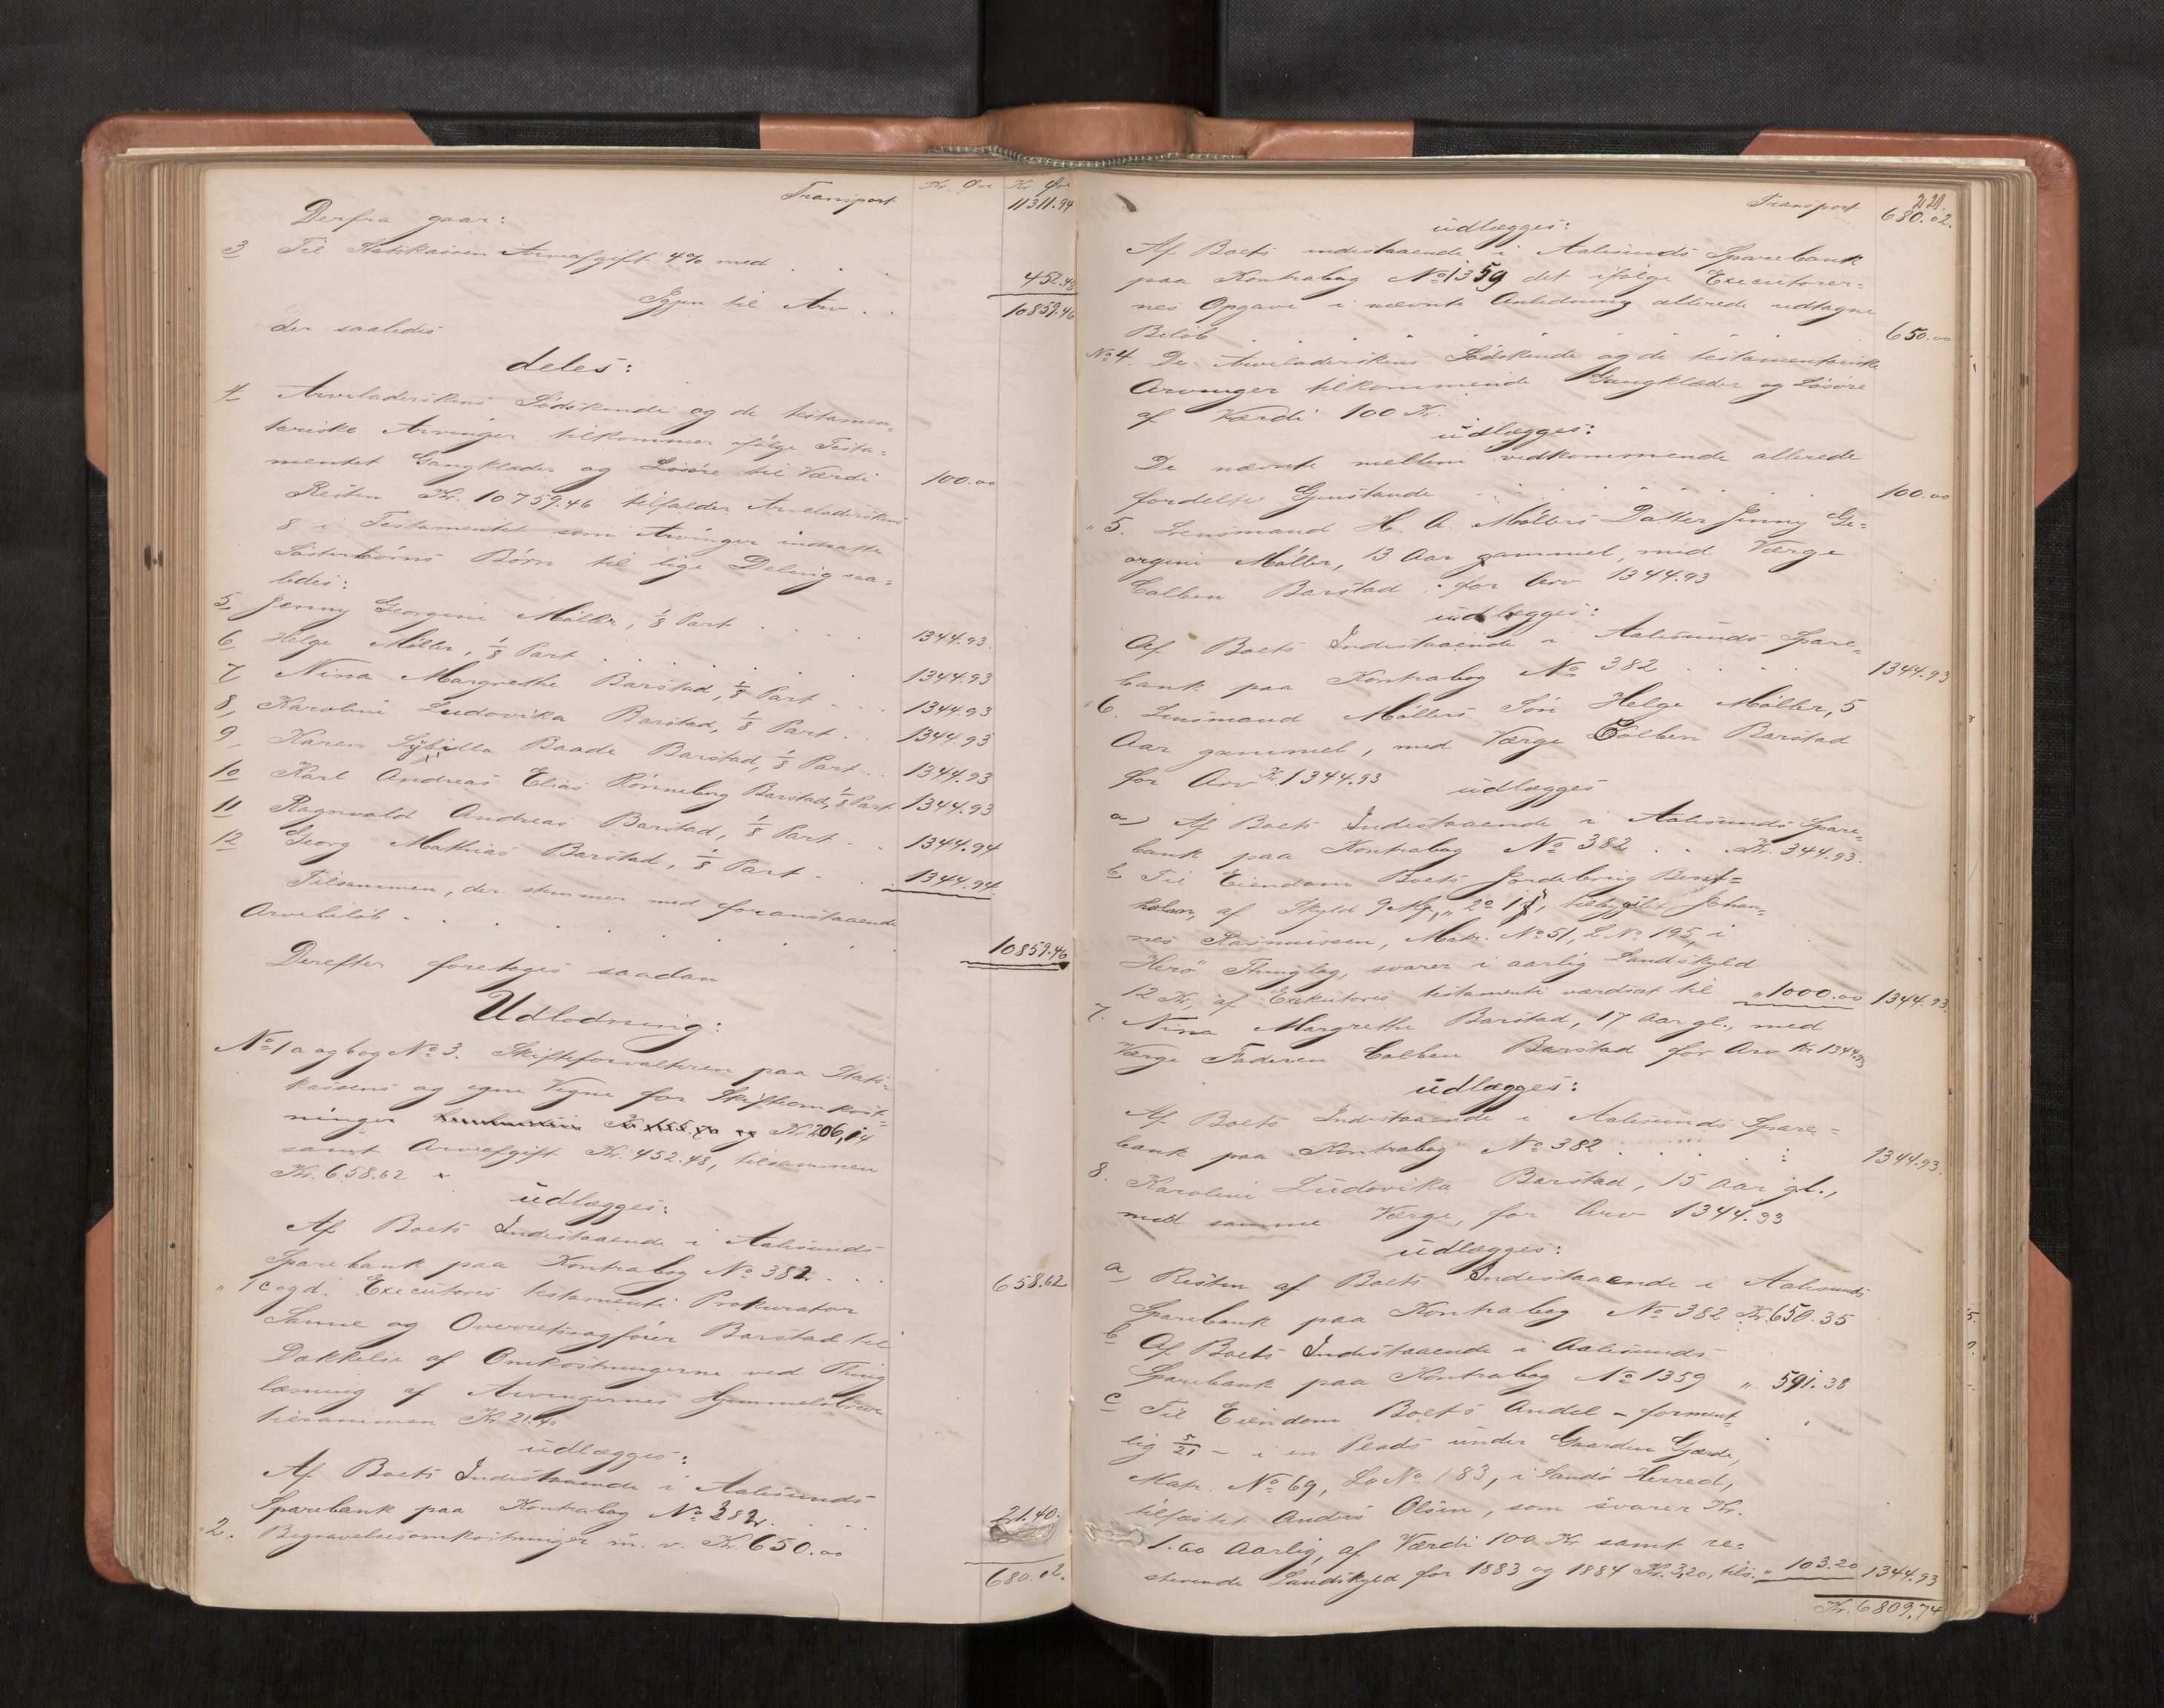 Kr. Øre Kr. Øre
Transport 11311.94
Derfra gaar:
3 Til Statskassen Arveafgift 4% med . . . 452.48
Igjen til Arv . . 10859.46
der saaledes
deles:
4 Arveladerskens Södskende og de testamen-
tariske Arvinger tilkommer ifölge Testa-
mentet Gangklæder og Lösöre til Værdi 100.00
Resten Kr. 10759.46 tilfalder Arveladerskens
8 i Testamentet som Arvinger indsatte
Södskenbörns Börn til lige Deling saa-
ledes:
5 Jenny Georgine Möller, 1/8 Part . . . . 1344.93.
6 Helge Möller, 1/8 Part . . . . . 1344.93
7 Nina Margrethe Barstad, 1/8 Part . . . 1344.93
8, Karoline Ludovika Barstad, 1/8 Part . 1344.93
9, Karen Sybilla Baade Barstad, 1/8 Part . . 1344.93
10 Karl Andreas Elias Rönneberg Barstad, 1/8 Part 1344.93
11 Ragnvald Andreas Barstad, 1/8 Part . . 1344.94
12 Georg Mathias Barstad, 1/8 Part . . . 1344.94.
Tilsammen, der stemmer med foranstaaende
Arvebelöb . . . . . . . 10859.46
Derefter foretoges saadan
Udlodning:
No 1 a og b og No 3. Skifteforvalteren paa Stats-
kassens og egne Vegne for Skifteomkost-
ninger Kr 206,14
samt Arveafgift Kr. 452.48, tilsammen
Kr. 658.62
udlægges:
Af Boets Indestaaende i Aalesunds
Sparebank paa Kontrabog No 382. . . . 658.62
" 1 c og d. Executores testamenti Prokurator
Sanne og Overretssagförer Barstad til
Dækkelse af Omkostningerne ved Thing
læsning af Arvingernes Hjemmelsbreve
tilsammen Kr 21.40
udlægges:
Af Boets Indestaaende i Aalesunds
Sparebank paa Kontrabog No 382. . . . 21.40.
2. Begravelsesomkostninger m. v. Kr. 650.00
680.02.
221.
Transport 680.02.
udlægges:
Af Boets indestaaende i Aalesunds Sparebank
paa Kontrabog No 1359 det ifölge Executorer-
nes Opgave i nævnte Anledning allerede udtagne
Belöb . . . . . . . 650.00
No 4. De Arveladerskens Södskende og de testamentariske
Arvinger tilkommende Gangklæder og Lösöre
af Værdi 100 Kr.
udlægges:
De nævnte mellem vedkommende allerede
fordelte Gjenstande . . . . . . 100.00
" 5. Lensmand H. A. Möllers Datter Jenny Ge-
orgine Möller, 13 Aar gammel, med Værge
Colben Barstad for Arv 1344.93
udlægges:
Af Boets Indestaaende i Aalesunds Spare-
bank paa Kontrabog No 382 . . . . 1344.93
" 6. Lensmand Möllers Sön Helge Möller, 5
Aar gammel, med Værge Colben Barstad
for Arv Kr. 1344.93 udlægges
a) Af Boets Indestaaende i Aalesunds Spare-
bank paa Kontrabog No 382 . . . Kr. 344.93.
b, Til Eiendom Boets Jordebrug
af Skyld tilbygslet Johan-
nes Rasmussen, Matr. No 51, L No 195, i
Herö Thinglag, svarer i aarlig Landskyld
12 Kr., af Exekutores testamenti værdsat til " 1000.00 1344.93.
7. Nina Margrethe Barstad, 17 Aar gl., med
Værge Faderen Colben Barstad for Arv Kr 1344.93
udlægges:
Af Boets Indestaaende i Aalesunds Spare-
bank paa Kontrabog No 382 . . . . . 1344.93.
8. Karoline Ludovika Barstad, 15 Aar gl.,
med samme Værge, for Arv 1344.93
udlægges:
a, Resten af Boets Indestaaende i Aalesunds
Sparebank paa Kontrabog No 382 Kr. 650.35
b Af Boets Indestaaende i Aalesunds
Sparebank paa Kontrabog No 1359 " 591.38
c Til Eiendom Boets Andel - forment-
lig 5/21 - i en Plads under Gaarden Gjærde,
Matr. No 69, Lö No 183, i Sandö Herred,
tilfæstet Anders Olsen, som svarer Kr.
1.60 Aarlig, af Værdi 100 Kr samt re-
sterende Landskyld for 1883 og 1884 Kr. 3,20, tils. " 103.20 1344.93
Kr. 6809,74